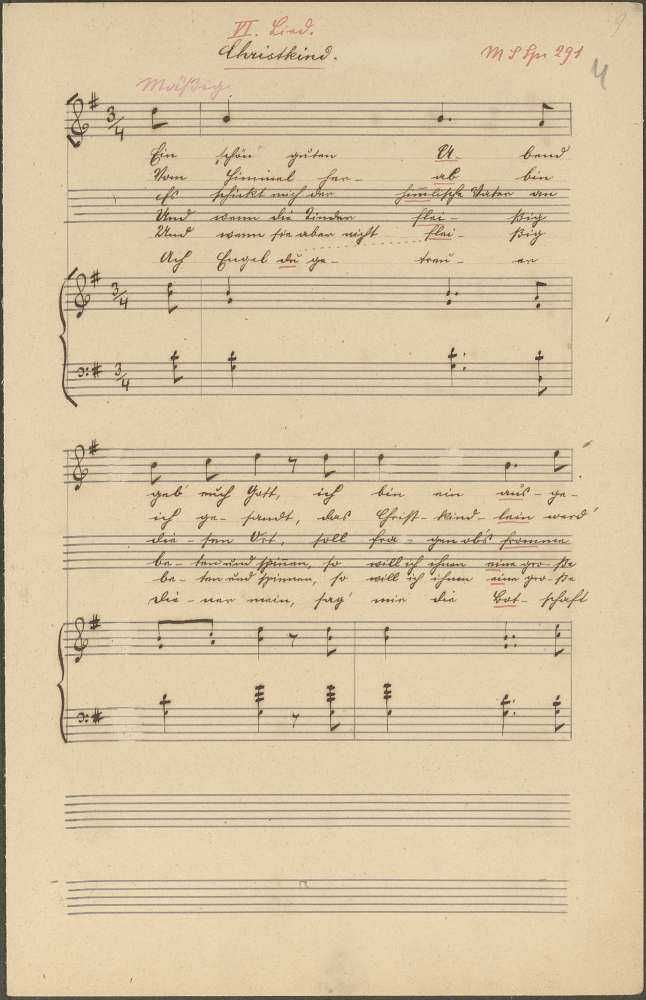 9
VI. Lied.
Christkind.
M S Spr 291
4
Mäßig
3/4
Ein schön' guten A- bend
Vom Himmel her- ab bin
Es schickt mich der himmlische Vater an
Und wenn die Kinder flei- ßig
Und wenn sie aber nicht flei- ßig
Ach Engel du ge- treu- er
3/4
3/4
geb' euch Gott, ich bin ein aus- ge-
ich ge- sandt, das Christ- kind- lein werd'
die- sen Ort, soll fra- gen ob's fromme
be- ten und spinnen, so will ich ihnen eine gro- ße
be- ten und spinnen, so will ich ihnen eine gro- ße
Die- ner mein, sag' mir die Bot- schaft